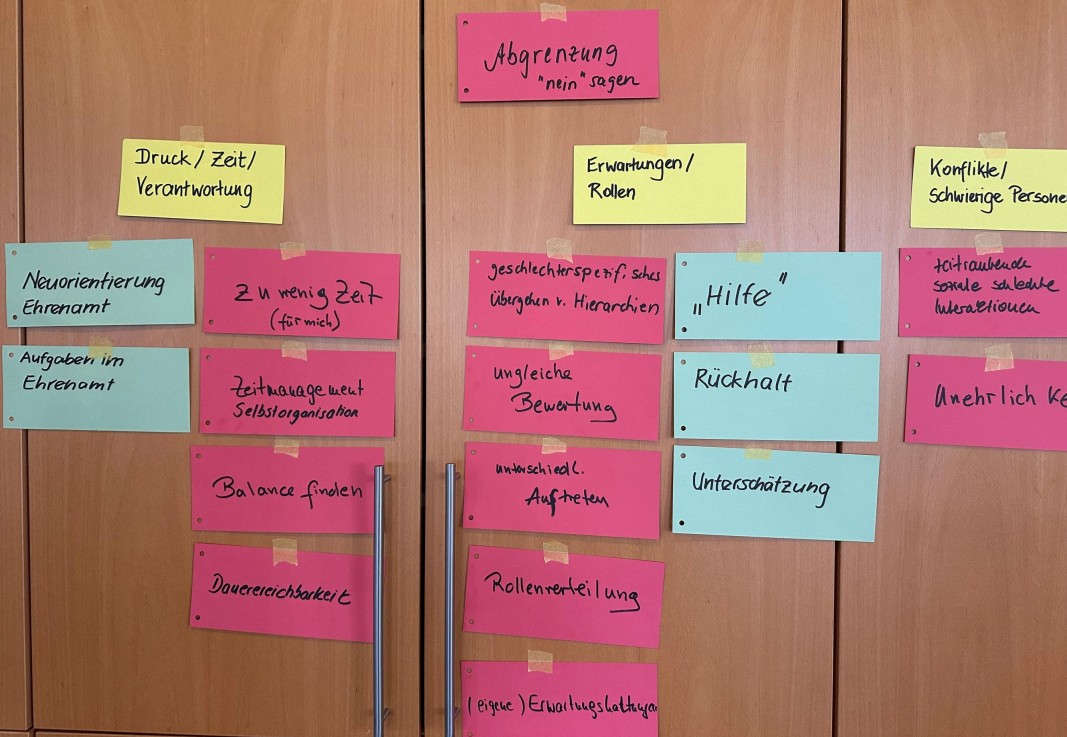 Abgrenzung
"nein" sagen
Druck / Zeit /
Verantwortung
Neuorientierung
Ehrenamt
Aufgaben im
Ehrenamt
zu wenig Zeit
(für mich)
Zeitmanagement
Selbstorganisation
Balance finden
Dauerereichbarkeit
Erwartungen /
Rollen
geschlechterspezifisches
Übergehen v. Hierarchien
ungleiche
Bewertung
unterschiedl.
Auftreten
Rollenverteilung
(eigene) Erwartungshaltungen
„Hilfe"
Rückhalt
Unterschätzung
Konflikte /
Schwierige Persone
zeitraubende
soziale schlechte
Interaktionen
Unehrlichke